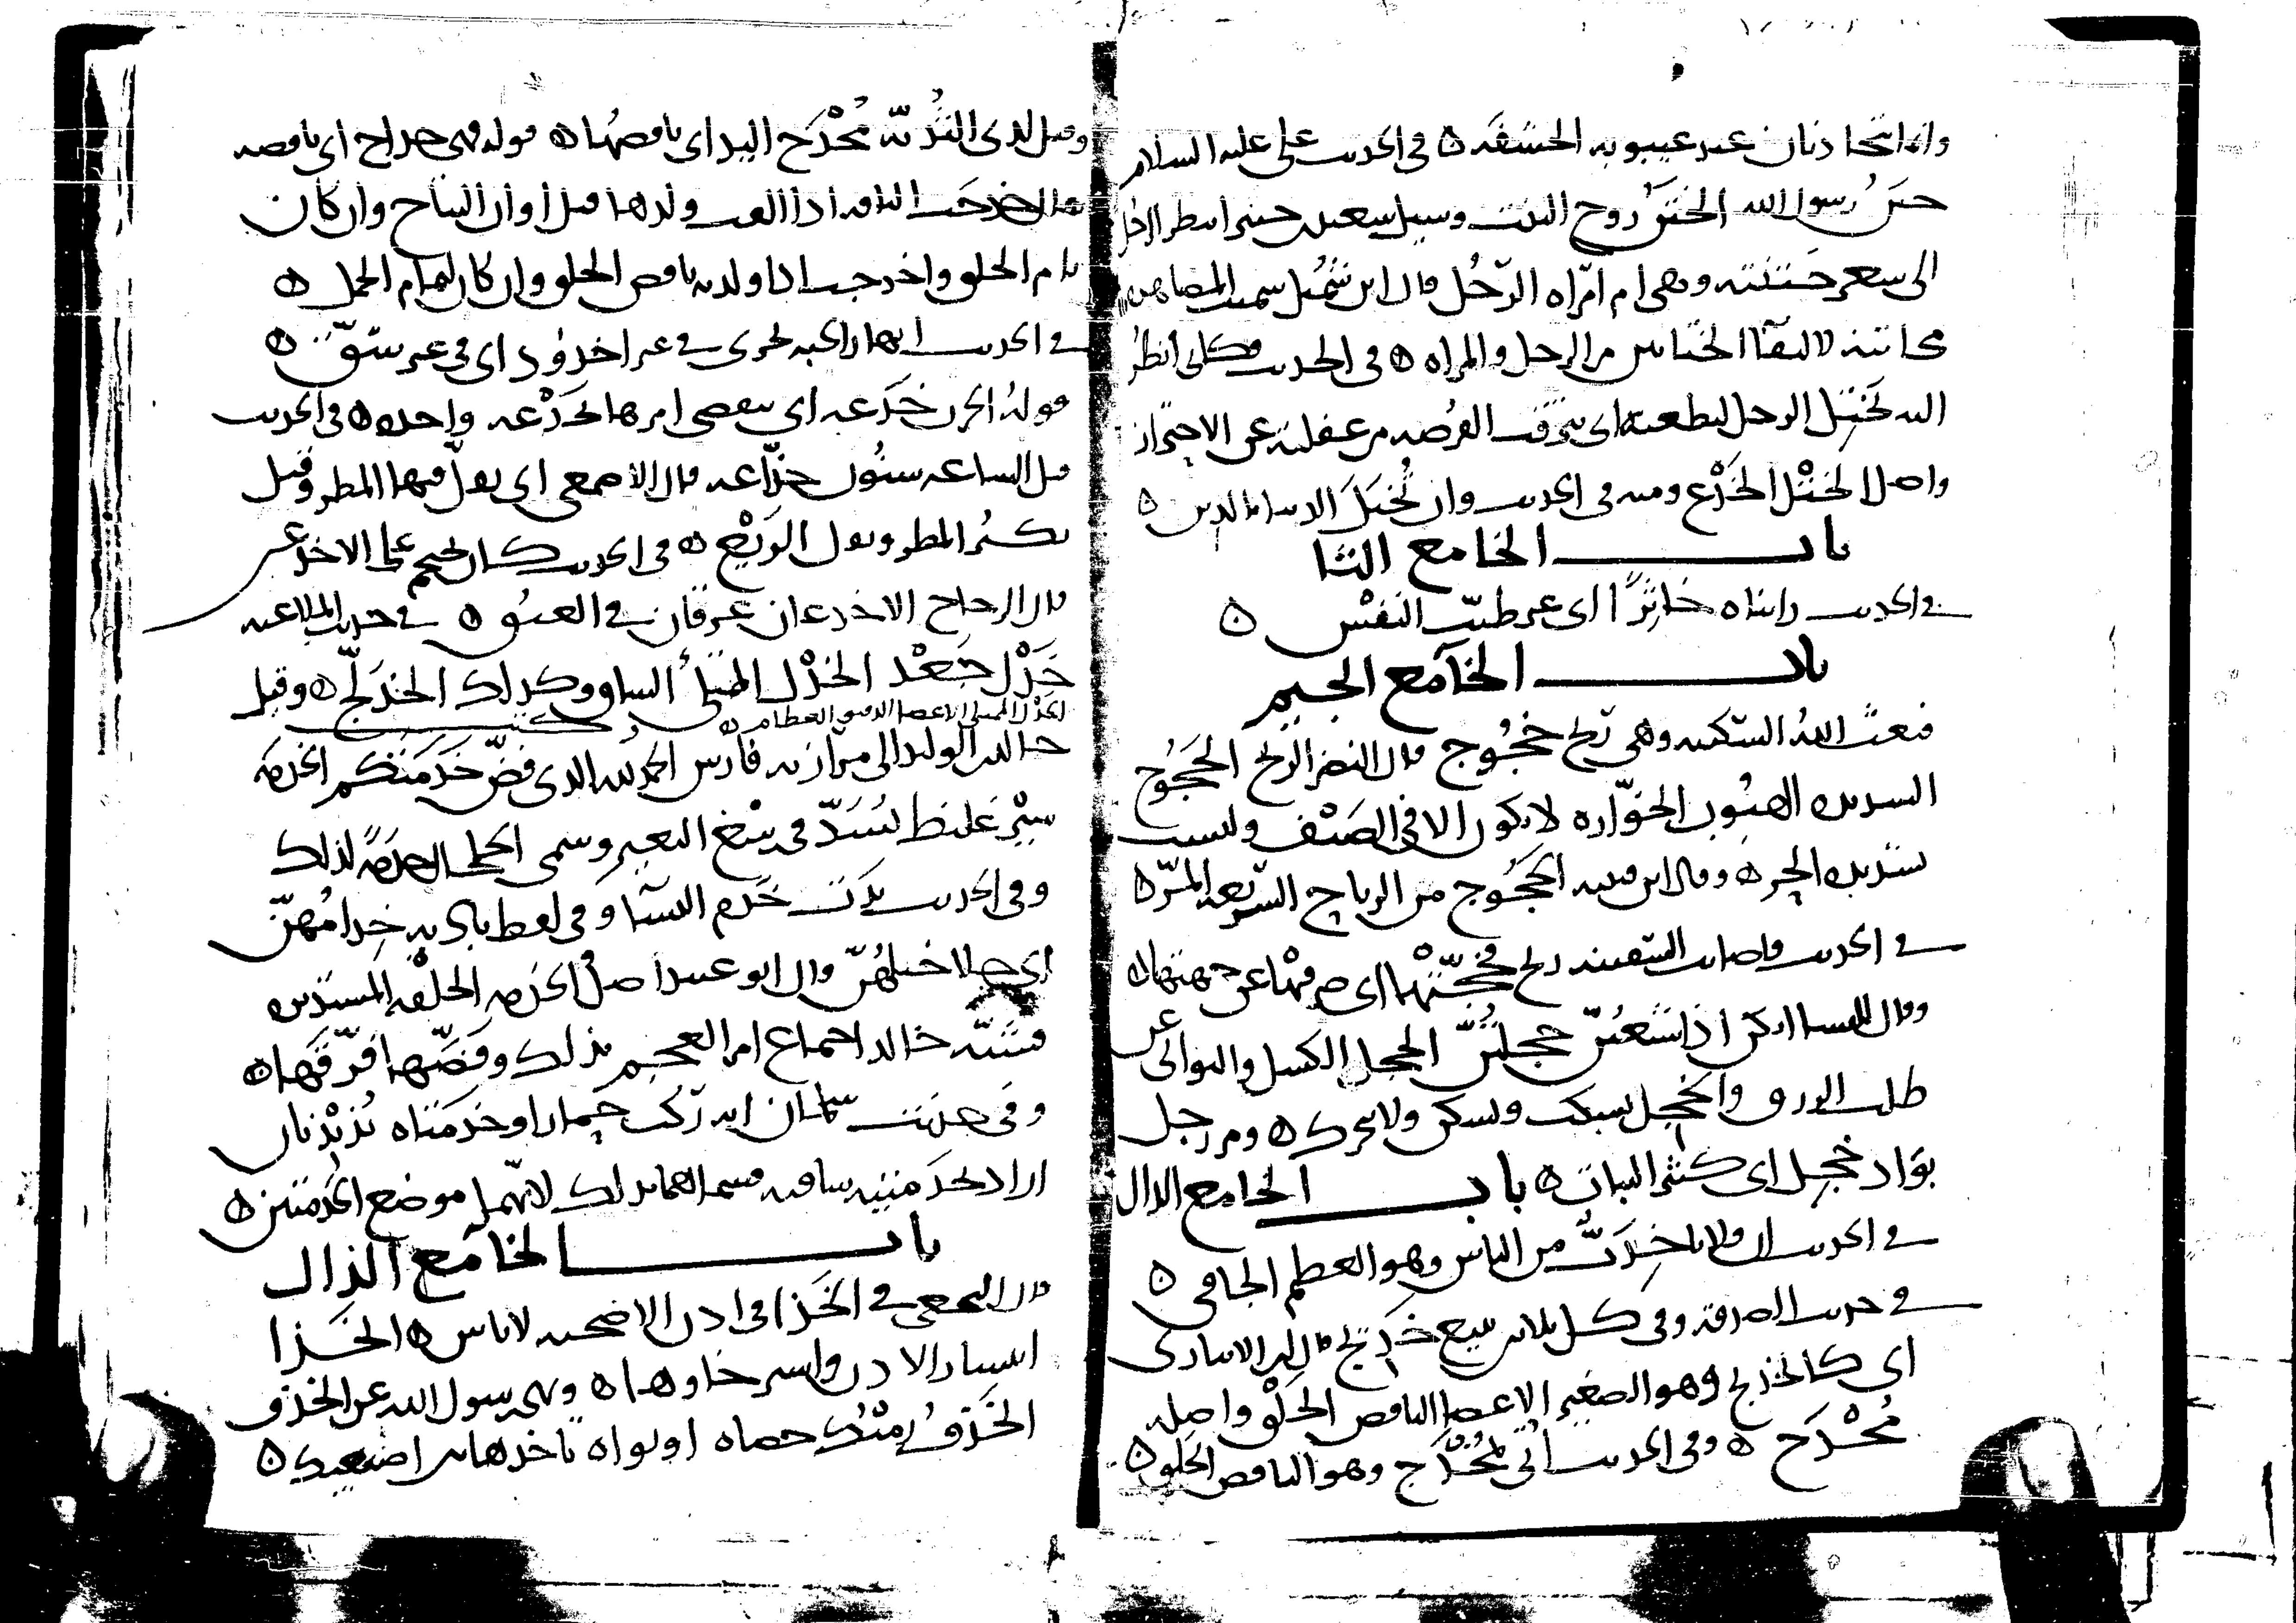 وانما يتحاذيان عند غيبوبة الحشفة ه في الحديث علي عليه السلام
ختن رسول الله الختن زوج البنت وسيل سعيد بن جبير اينظر الرجل
الى شعر ختنته وهي ام امراة الرجل قال ابن شميل سميت المصاهرة
مخاتنة لالتقآ الختانين من الرجل والمراة ه في الحديث فكاني انظر
اليه يختل الرجل ليطعنه اي يترقب الفرصة من غفلته عن الاحتراز
واصل الختل الخدع ومنه في الحديث وان تختل الدنيا بالدين ه
باب الخا مع الثا
في الحديث رايناه خاثرًا اي غير طيب النفس ه
باب الخآ مع الجيم
فبعث الله السكينة وهي ريح خجوج قال النضر الريح الخجوج
الشديدة الهبوب الخوّارة لا يكون الا في الصيف وليست
شديدة الحر ه وقال ابن قتيبة الخجوج من الرياح السريعة المرّ ه
في الحديث فاصابت السفينة ريح فخجّتها اي صرفتها عن جهتها ه
وقال للنسا انكن اذا شبعتنّ خجلتنّ الخجل الكسل والتواني عن
طلب الرزق والخجل يسكت ويسكن ولا يتحرك ه ومر رجل
بواد خجل اي كثير النبات ه باب الخا مع الدال
في الحديث ان فلانا خدبّ من الناس وهو العظيم الجافي ه
في حديث الصدقة وفي كل ثلاثين تبيع خديج قال ابن الانباري
اي كالخديج وهو الصغير الاعضا الناقص الخلق واصله
مخدج ه وفي الحديث اتي بمخدّج وهو الناقص الخلق ه
وقيل لذي الثدية مخدج اليد اي ناقصها ه قوله فهي خداج اي ناقصة
يقال خدجت الناقة اذا القت ولدها قبل اوان النتاج وان كان
تام الخلق واخدجت اذا ولدته ناقص الخلق وان كان لتمام الحمل ه
في الحديث انهار الجنة تجري في غير اخدود اي في غير شقّ ه
قوله الحرب خدعة اي ينقضي امرها بخدعة واحدة ه في الحديث
قبل الساعة سنون خدّاعة قال الاصمعي اي يقلّ فيها المطر وقيل
يكثر المطر ويقل الريع ه في الحديث كان يحتجم على الاخدعين
قال الزجاج الاخدعان عرقان في العنق ه في حديث الملاعنة
خدل جعد الخدل الممتلئ الساق وكذلك الخدلّج ه وقيل
الخدل الممتلي الاعضا الدقيق العظام ه وكتب
خالد بن الوليد الى مرازبة فارس الحمد لله الذي فضّ خدمتكم الخدمة
سير غليظ يشدّ في رسغ البعير وسمي الخلخال خدمةً لذلك
وفي الحديث بدت خدم النسآ وفي لفظ بادية خدامهنّ
اي خلاخيلهنّ قال ابو عبيد اصل الخدمة الحلقة المستديرة
فشبّه خالد اجتماع امر العجم بذلك وفضّها فرّقها ه
وفي حديث سلمان انه ركب حمارا وخدمتاه تذبذبان
اراد بخدمتيه ساقيه فسماهما بذلك لانهما موضع الخدمتين ه
باب الخا مع الذال
قال النخعي في الخذا في اذن الاضحية لا باس ه الخذا
انكسار الاذن واسترخاوها ه ونهى رسول الله عن الخذف
الخذف رميك حصاة او نواة تاخذها بين اصبعيك ه